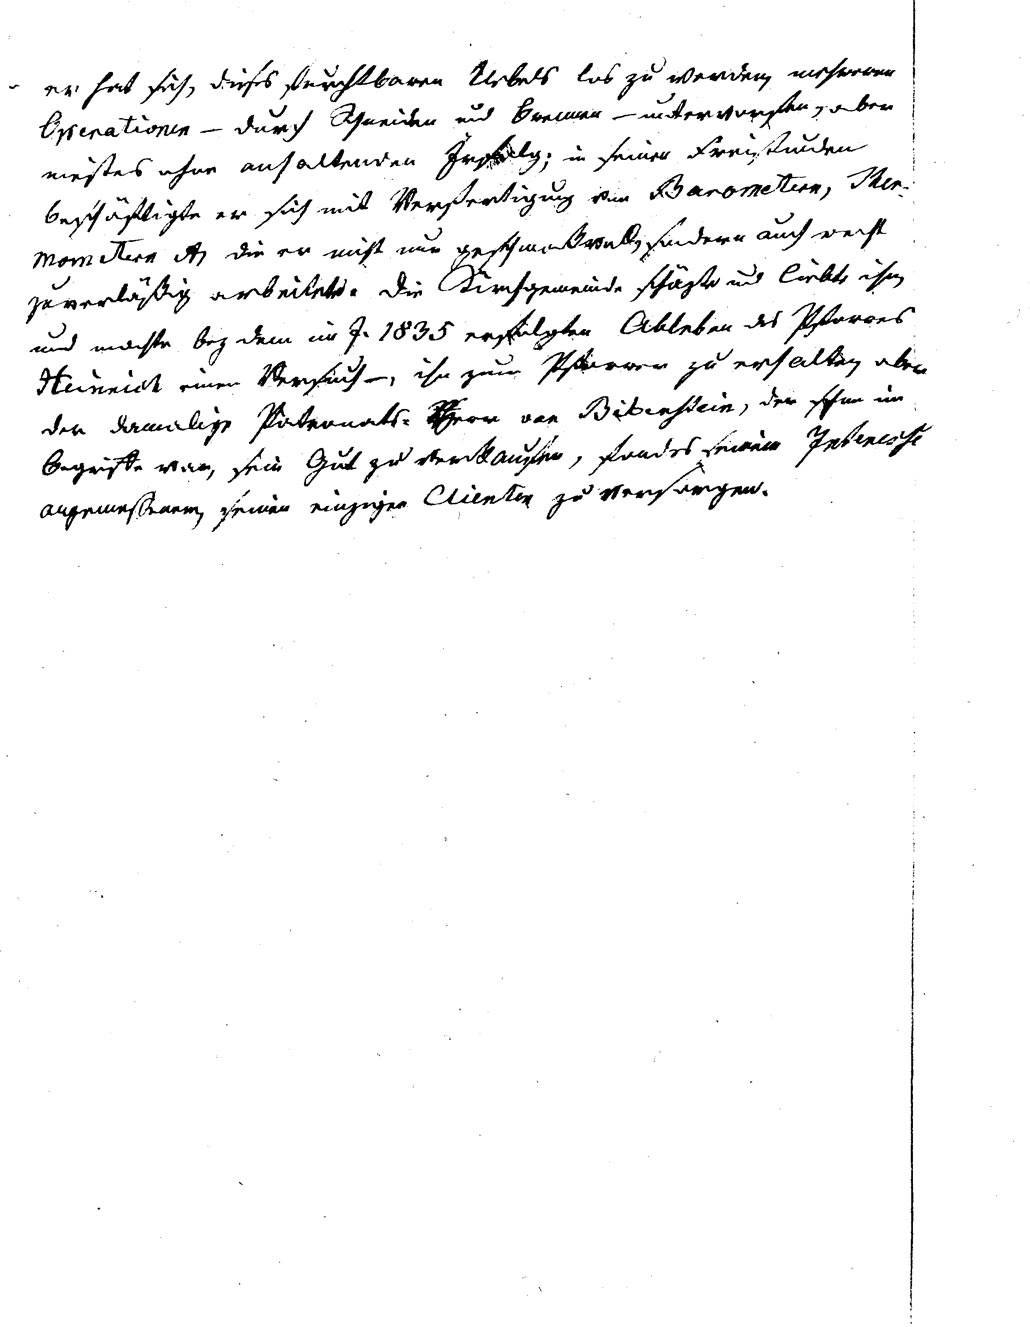 er hat sich, dieses furchtbaren Uebels los zu werden, mehreren
Operationen — durch Schneiden und Brennen — unterworfen, aber
meistes ohne anhaltenden Erfolg; in seinen Freistunden
beschäftigte er sich mit Verfertigung von Barometern, Ther-
mometern die er nicht nur geschmackvoll, sondern auch recht
zuverläßig arbeitete. Die Kirchgemeinde schäzte und liebte ihn,
und machte bey dem im J. 1835 erfolgten Ableben des Pfarres
Heinrich einen Versuch —, ihn zum Pfarrer zu erhalten, aber
der damalige Patronats-Herr von Bibenstein, der schon im
begriffe war, sein Gut zu verkaufen, fand es seinem Interesse
angemessener, seinen einzigen Clienten zu versorgen.